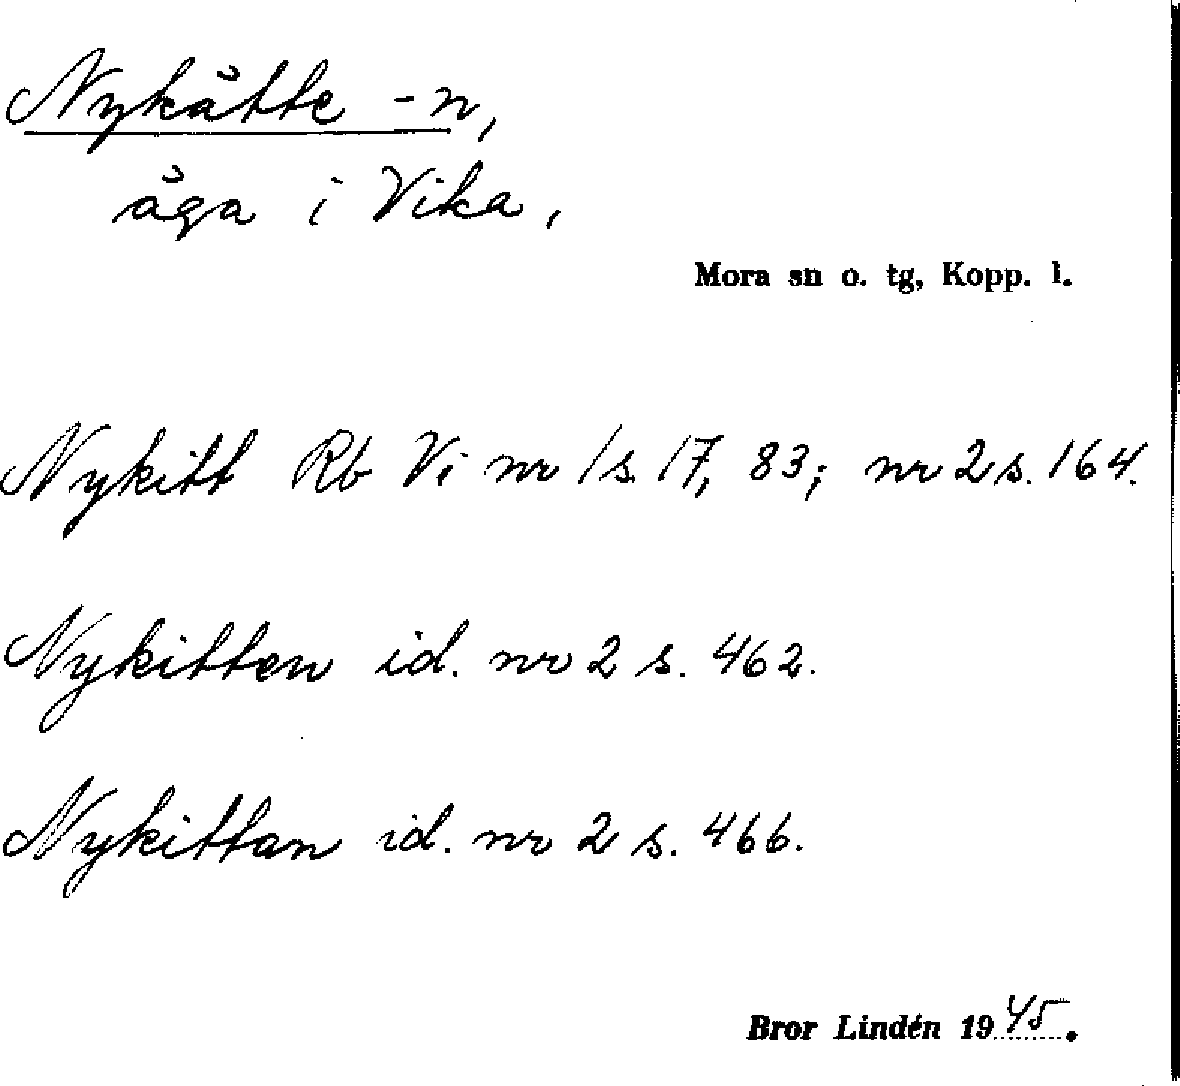 Nykätte -n,
äga i Vika,
Mora sn o. tg, Kopp. l.
Nykitt Rb Vi nr 1 s. 17, 83; nr 2 s. 164.
Nykitten id. nr 2 s. 462.
Nykittan id. nr 2 s. 466.
Bror Lindén 1945.